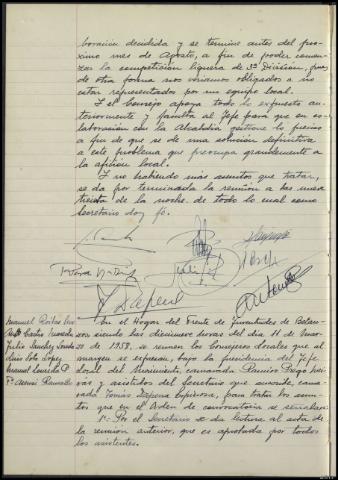 boración decidida y se termine antes del pro-
ximo mes de Agosto, a fin de poder comen-
zar la competición liguera de 3ª División, pues
de otra forma nos veriamos obligados a no
estar representados por un equipo local.
Y el Consejo apoya todo lo expuesto an-
teriormente y faculta al Jefe para que en co-
laboración con la Alcaldia gestione lo preciso
a fin de que se dé una solución definitiva
a este problema que preocupa grandemente a
la afición local.
Y no habiendo más asuntos que tratar,
se da por terminada la reunión a las nueve
treinta de la noche. de todo lo cual como
Secretario doy fé.
En el Hogar del Frente de Juventudes de
siendo las diecinueve horas del dia 11 de
de 1958, se reunen los Consejeros locales que al
margen se expresan, bajo la presidencia del Jefe
Local del Movimiento, camarada Ramiro
y asistidos del Secretario que suscribe, cama-
rada Tomás Espinosa, para tratar los asun-
tos que en el Orden de convocatoria se señalaban
1º: Por el Secretario se da lectura al acta de
la reunión anterior, que es aprobada por todos
los asistentes.
Manuel
Julio Sanchez
Luis López
Manuel